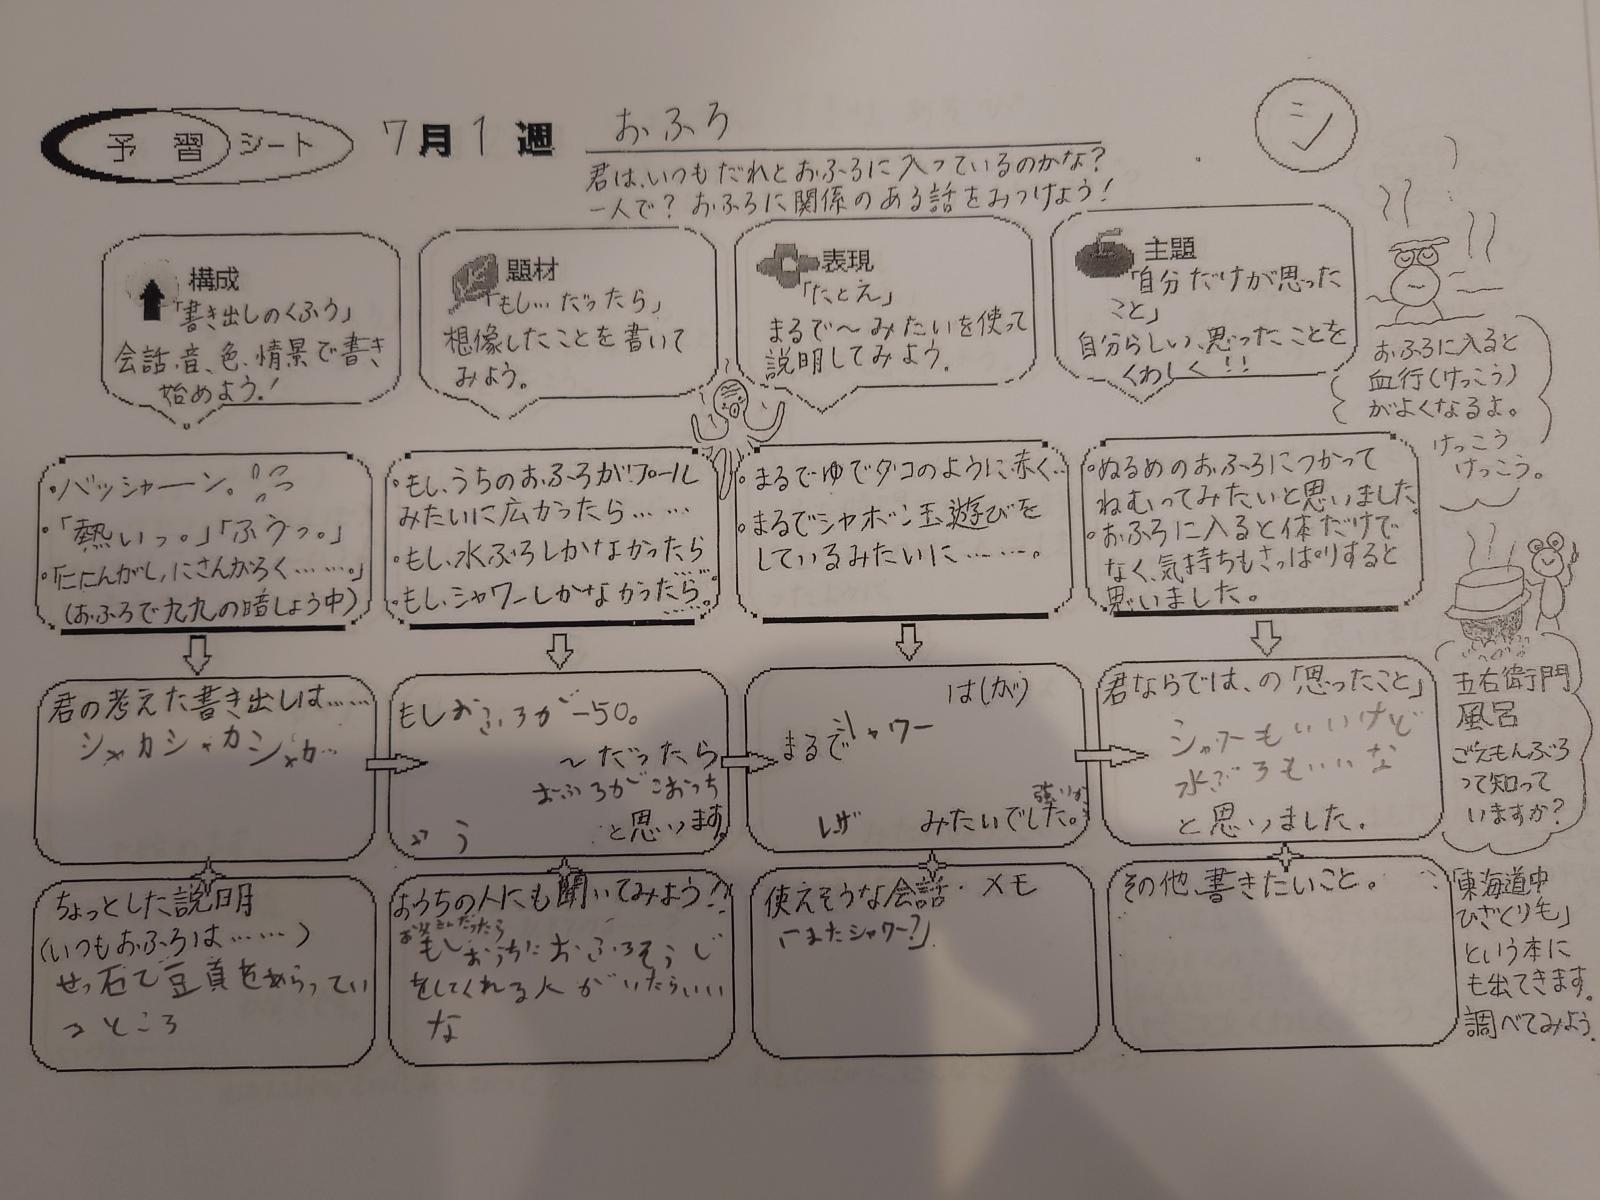 予習シート 7月1週 おふろ
シ
君は、いつもだれとおふろに入っているのかな?
一人で? おふろに関係のある話をみつけよう!
構成
「書き出しのくふう」
会話、音、色、情景で書き
始めよう!
題材
「もし…だったら」
想像したことを書いて
みよう。
表現
「たとえ」
まるで〜みたいを使って
説明してみよう。
主題
「自分だけが思った
こと」
自分らしい、思ったことを
くわしく!!
おふろに入ると
血行(けっこう)
がよくなるよ。
けっこう
けっこう。
・バッシャーン。
・「熱いっ。」「ふうっ。」
・「ににんがし、にさんがろく……。」
(おふろで九九の暗しょう中)
・もし、うちのおふろがプール
みたいに広かったら……
・もし、水ぶろしかなかったら
・もし、シャワーしかなかったら
・まるでゆでダコのように赤く…
・まるでシャボン玉遊びを
しているみたいに……。
・ぬるめのおふろにつかって
ねむってみたいと思いました
・おふろに入ると体だけで
なく、気持ちもさっぱりすると
思いました。
君の考えた書き出しは……
シャカシャカシャカ…
もしおふろが-50。
〜だったら
おふろがこおっち
ゃう
と思います。
は(が)
まるでシャワー
強いか
みたいでした。
君ならでは、の「思ったこと」
シャワーもいいけど
水ぶろもいいな
と思いました。
五右衛門
風呂
ごえもんぶろ
って知って
いますか?
ちょっとした説明
(いつもおふろは……)
せっ石で頭をあらってい
るところ
おうちの人にも聞いてみよう!!
お父さんだったら
もしおうちにおふろそうじ
をしてくれる人がいたらいい
な
使えそうな会話・メモ
「またシャワー?」
その他、書きたいこと。
「東海道中
ひざくり毛」
という本に
も出てきます。
調べてみよう。